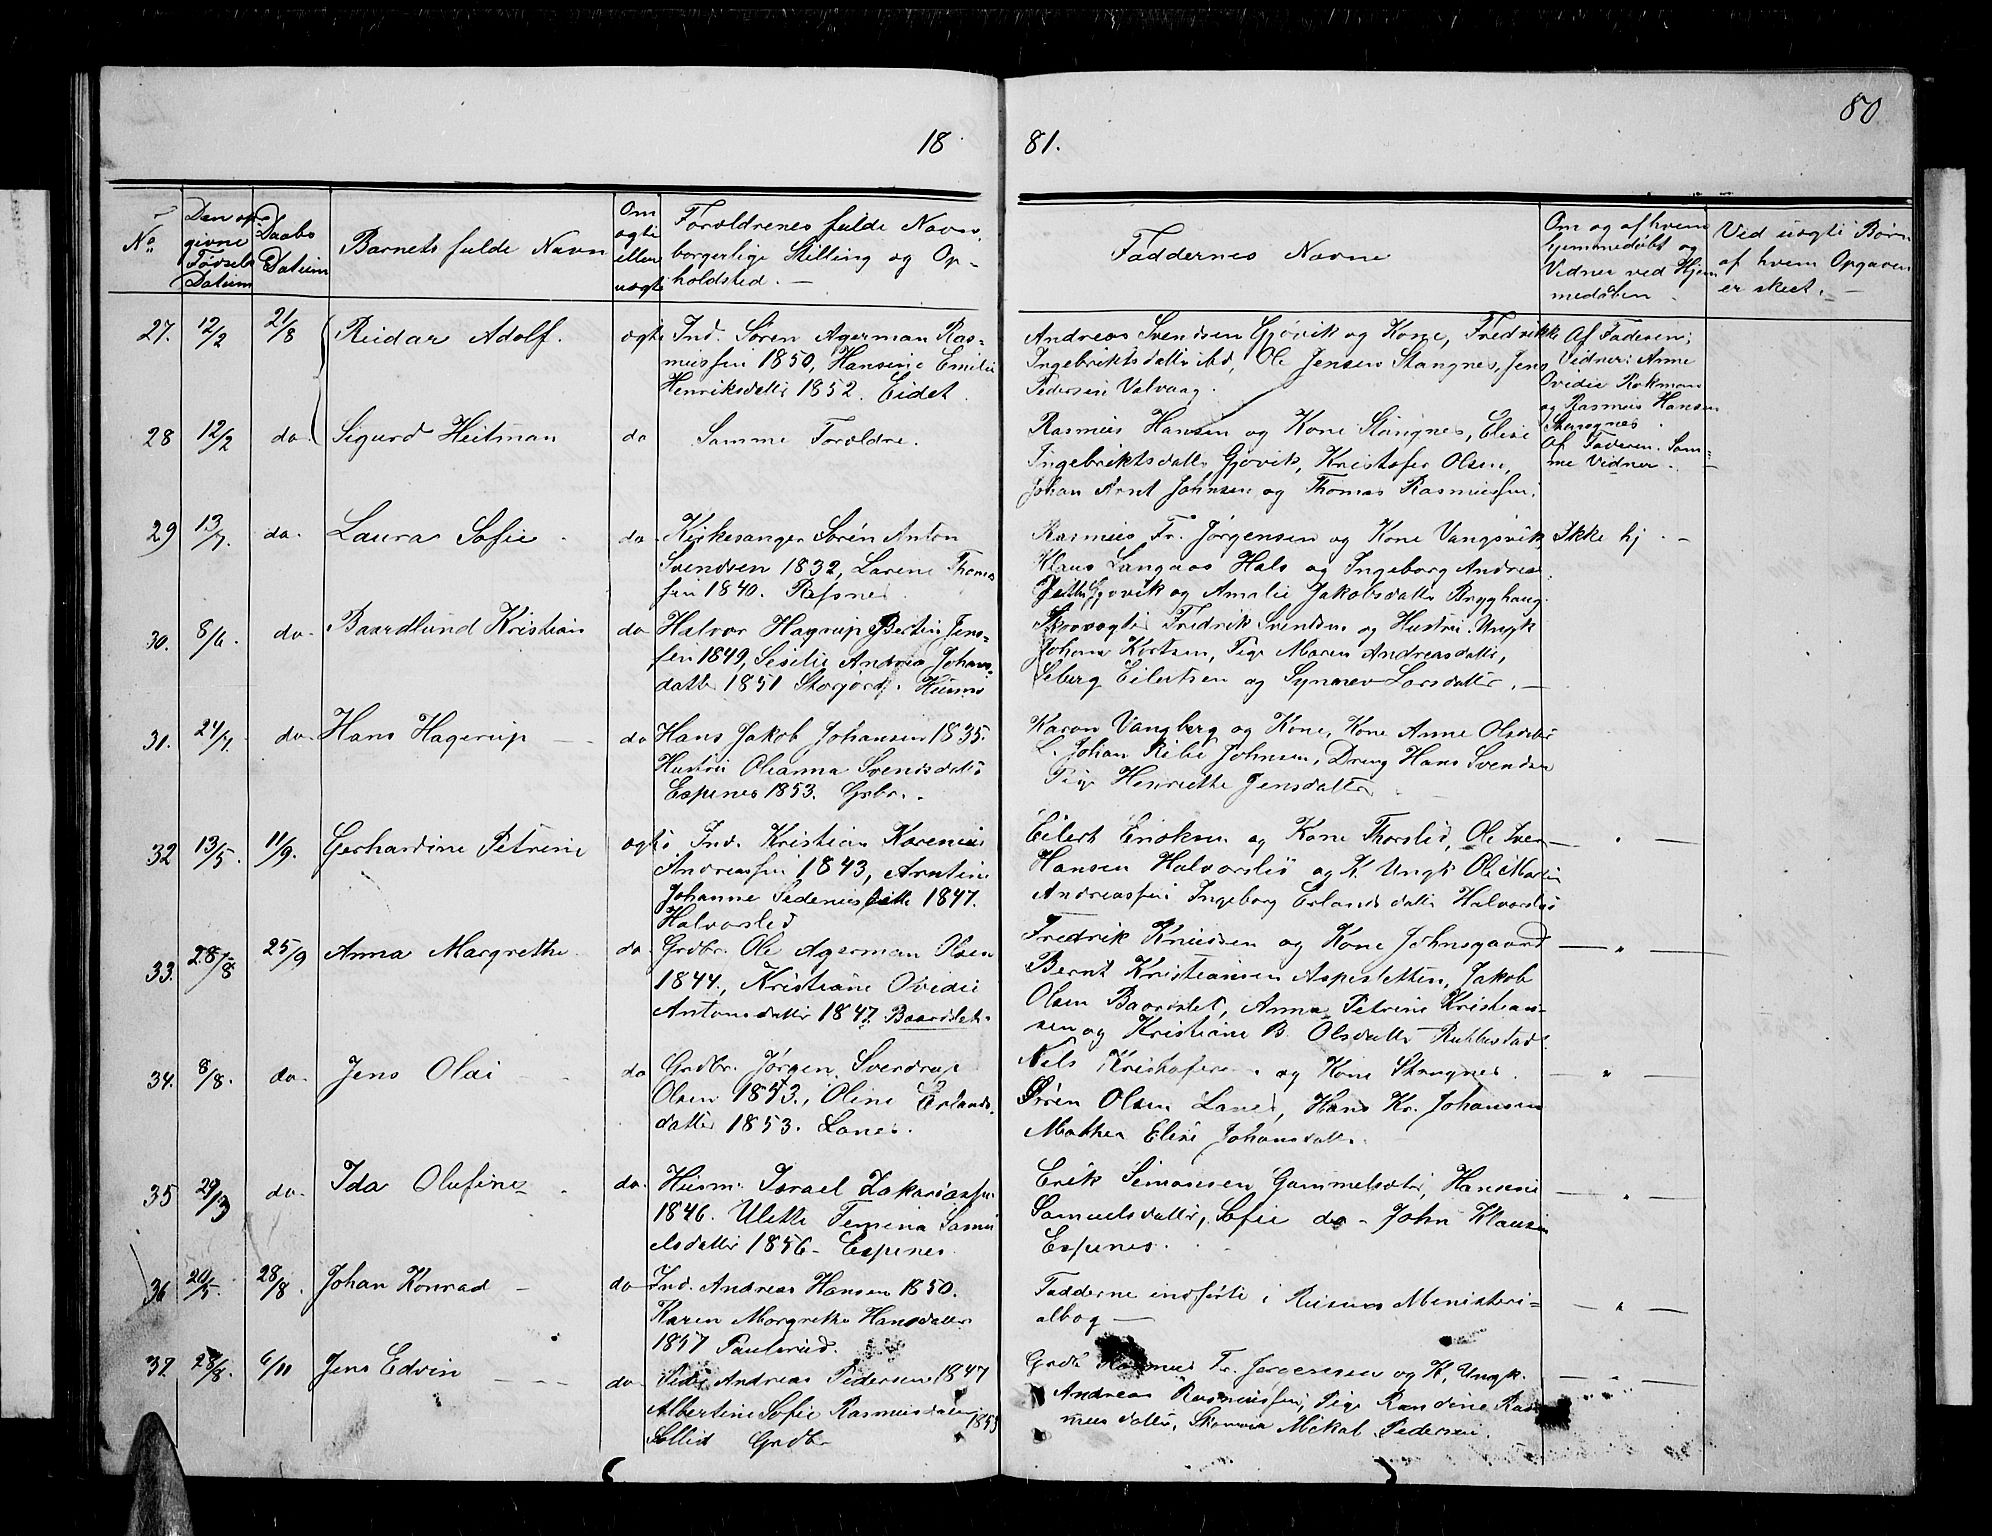 80
18 81.
No
Den op-
givne
Fødsels
Datum
Daabs
Datum
Barnets fulde Navn
Om
ægte
eller
uægte
Forældrenes fulde Navn,
borgerlige Stilling og Op-
holdsted. —
Faddernes Navne
Om og af hvem
hjemmedøbt og
Vidner ved Hjem
medøben
Ved uægte Børn
af hvem Opgaven
er skeet. —
27. 12/2 21/8 Reidar Adolf. ægte Ind. Søren Agerman Ras-
mussen 1850, Hansine Emilie
Henriksdatter 1852. Eidet.
Andreas Svendsen Gjøvik og Kone, Fredrikke
Ingebriktsdatter ibd, Ole Jensen Stangnes, Jens
Pedersen Valvaag.
Af Faderen;
Vidner: Anne
Ovidie Rokman
og Rasmus Hansen
Stangnes
28 12/2 do. Sigurd Heitman do Samme Forældre.
Rasmus Hansen og Kone Stangnes, Elise
Ingebriktsdatter Gjøvik, Kristofer Olsen,
Johan Arnt Johnsen og Thomas Rasmussen.
Af Faderen. Sam-
me Vidner.
29 13/7. do. Laura Sofie do. Kirkesanger Søren Anton
Svendsen 1832, Larene Thomas
sen 1840. Refsnes
Rasmus Fr. Jørgensen og Kone Vangsvik
Klaus Langaas Hals og Ingeborg Andreas
datter Gjøvik og Amalie Jakobsdatter Bryghaug.
Ikke hj. —
30. 8/6. do. Baardlund Kristian do Halvor Hagrup Bertin Jens-
sen 1849, Seselie Andrea Johans
datter 1851 Storjord. Husm
Fredrik Svendsen og Hustru. Ungk
Johan Kortsen, Pige Maren Andreasdatter,
Seberg Eilertsen og Synnev Larsdatter. —
31. 24/7. do. Hans Hagerup — do Hans Jakob Johansen 1835.
Hustru Oleanna Svendsdatter
Espenes 1853. Grbr.
Karon Vangberg og Kone, Kone Anne Olsdatter
L. Johan Johnsen, Dreng Hans Svendsen
Pige Henriette Jensdatter
32 13/5. 11/9. Gerhardine Petrine ægte Ind. Kristian Karenius
Andreassen 1843, Arntine
Johanne Pedersdatter 1847.
Halvorslid
Eilert Eriksen og Kone Thorslid, Ole Iver
Hansen Halvorsli og K. Ungk Ole Martin
Andreassen Ingeborg Erlandsdatter Halvorsli
— " —
33. 28/8 25/9 Anna Margrethe do. Grdbr. Ole Agerman Olsen
1844., Kristiane Ovidie
Antonsdatter 1847. Baardslet.
Fredrik Knudsen og Kone Johnsgaard
Bernt Kristiansen Aspesletten, Jakob
Olsen Baardslet, Anna Petrine Kristian-
sen og Kristiane B. Olsdatter Rubbestad.
— " —
34. 8/8. do. Jens Olai do Grdbr. Jørgen Sverdrup
Olsen 1853., Oline Erlands-
datter 1853. Lanes.
Nels Kristofersen og Kone Skognes.
Søren Olsen Lanes, Hans Kr. Johansen
Mathea Elise Johansdatter.
— " —
35 29/3 do. Ida Olufine do. Husm. Israel Zakariassen
1846. Ulette Femina Samu
elsdatter 1856 - Espenes.
Erik Simonsen Gammelsæter, Hansine
Samuelsdatter, Sofie do - John Klausen
Espenes.
— " —
36 20/5. 28/8. Johan Konrad — do Ind. Andreas Hansen 1850.
Karen Margrethe Hansdatter
1857 Paulsrud.
Fadderne indførte i Ministeri-
albog —
— " —
37. 28/8. 6/11 Jens Edvin — — — do. Peder Andreas Pedersen 1847
Albertine Sofie Rasmusdatter 1855
Sollid Grdbr
Grdb Rasmus Fr. Jørgensen og K. Ungk.
Andreas Rasmussen, Pige Randine Ras
musdatter, Mikal Pedersen.
— " —